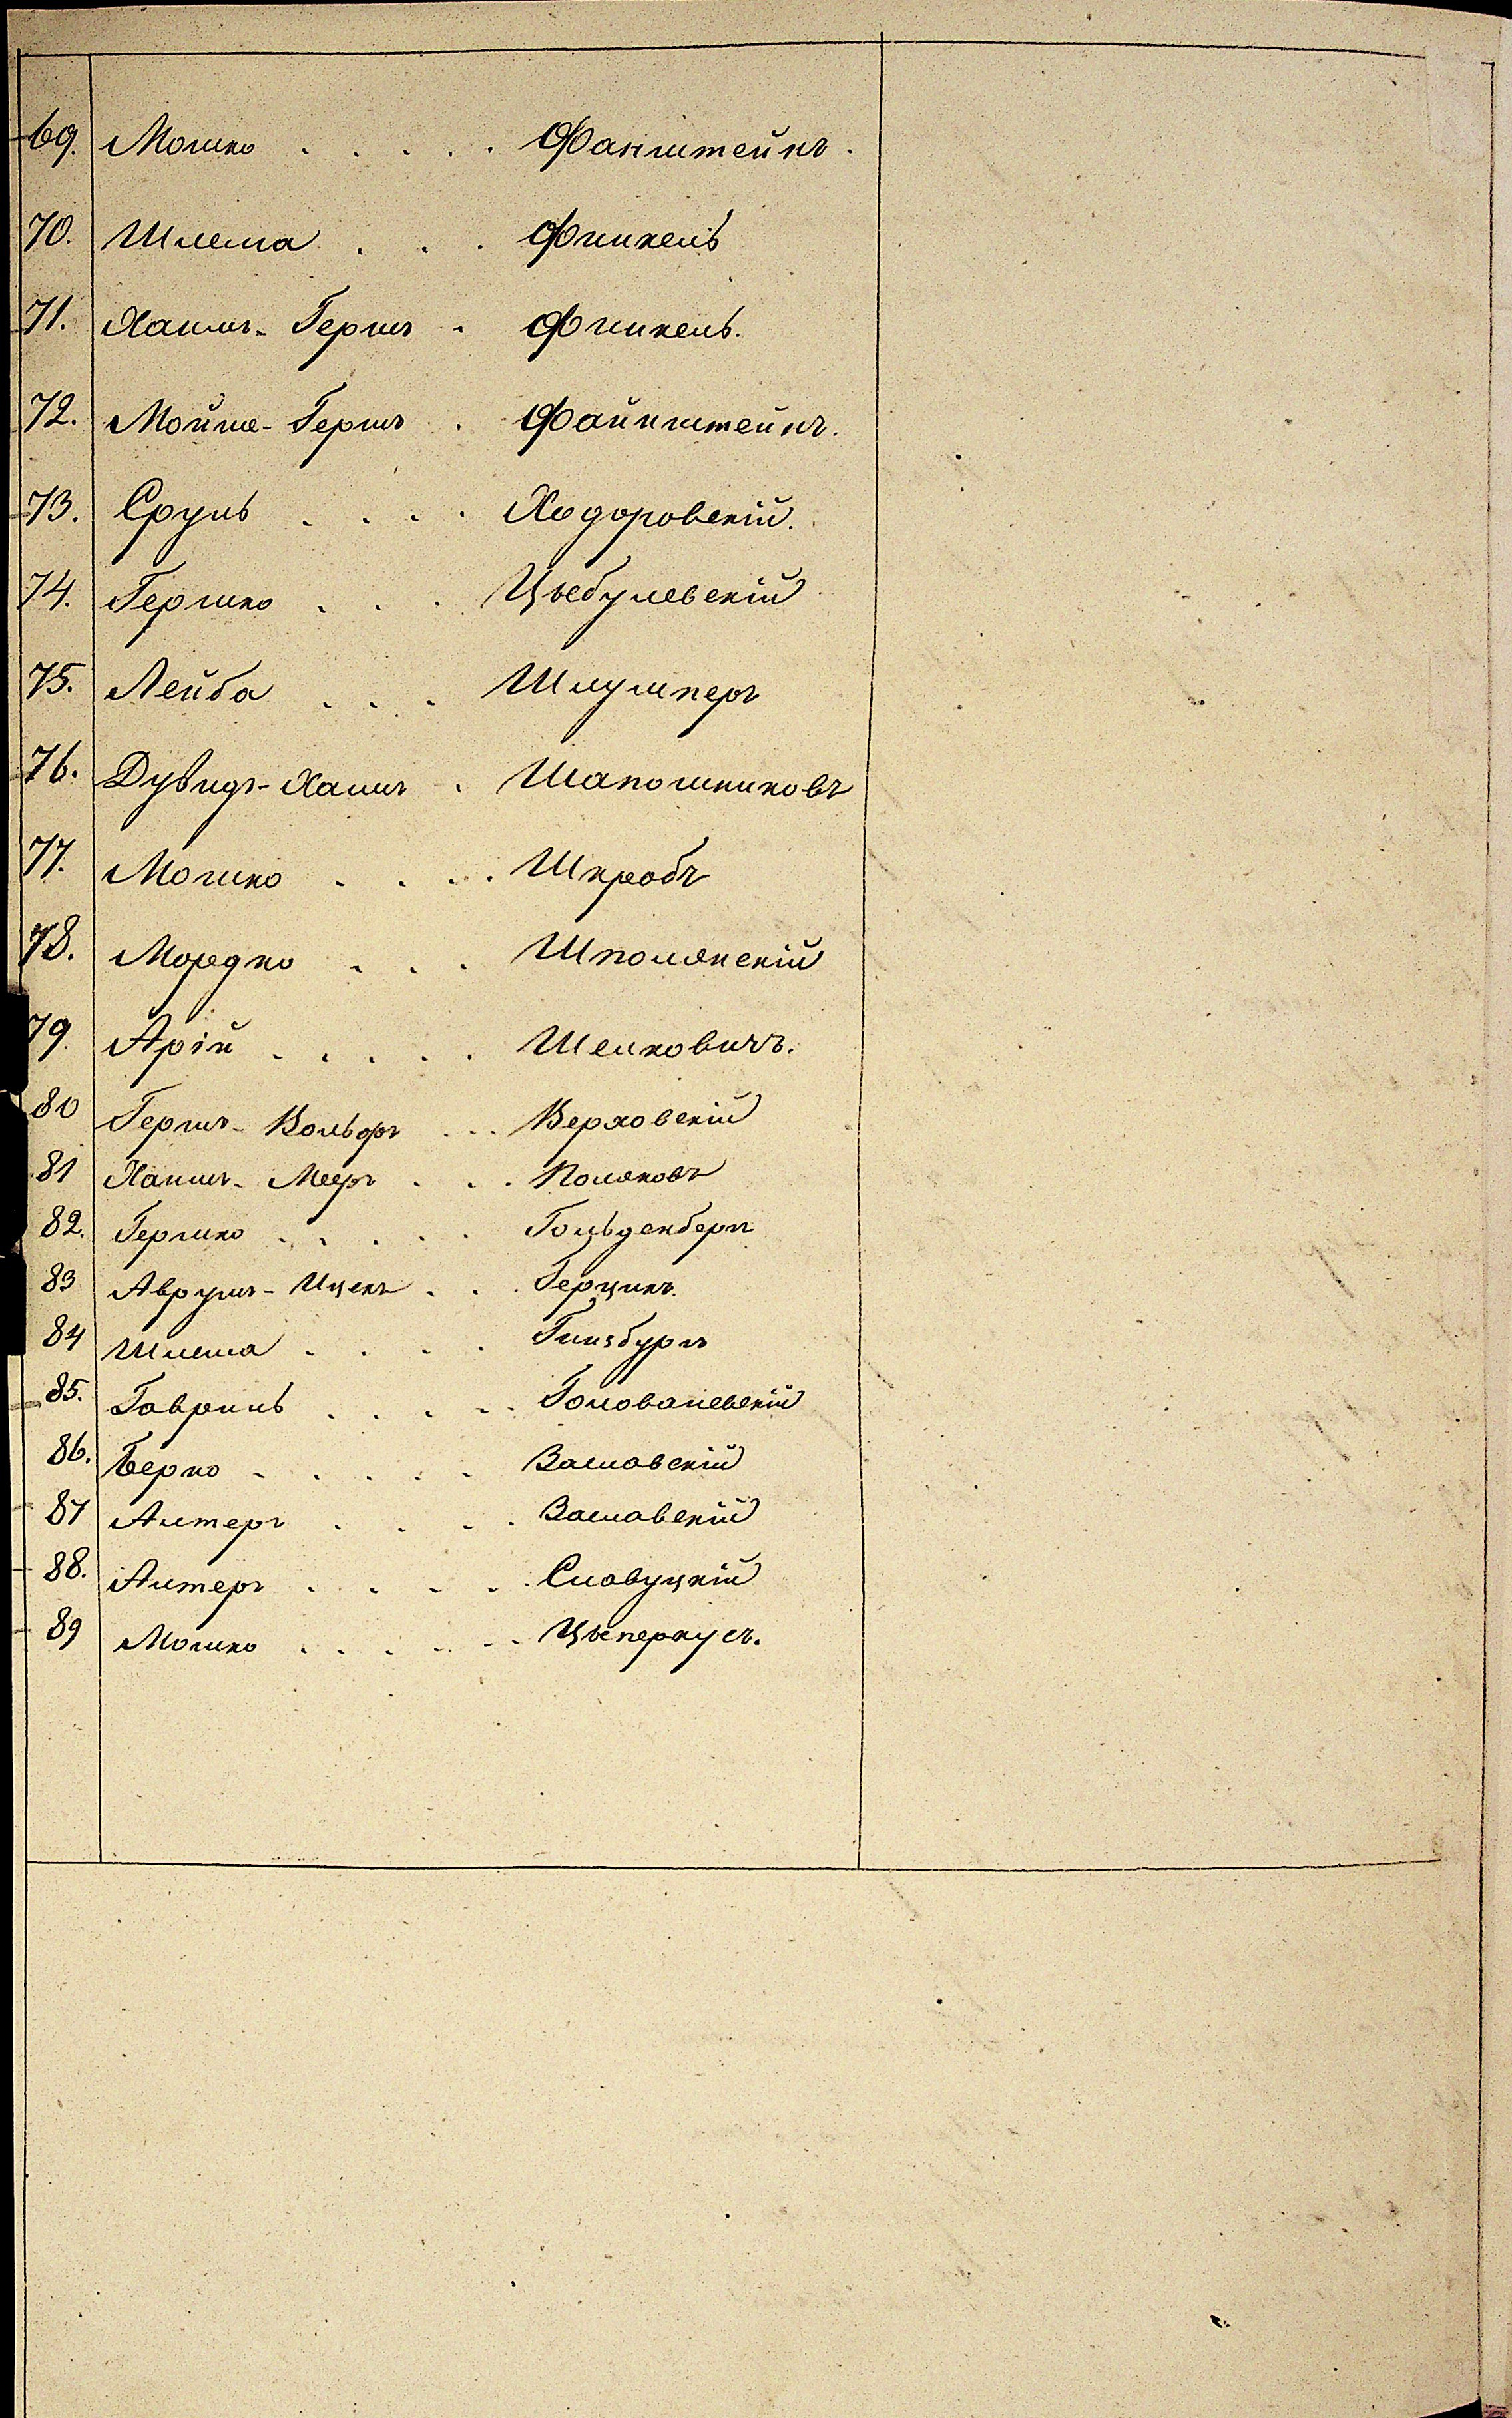 69. Мошко . . . . . Фанштейнъ.
70. Шлема . . . Финкель
71. Хаимъ-Гершъ . Финкель.
72. Мойше-Гершъ . Файнштейнъ.
73. Сруль . . . . Ходоровскій.
74. Гершко . . . Цыбулевскій
75. Лейба . . . Шлумперъ
76. Дувидъ-Хаимъ . Шапошниковъ
77. Мошко . . . . Шкробъ
78. Мордко . . . Шполянскій
79. Арій . . . . . Шенковичъ.
80 Гершъ-Вольфъ . . . Верховскій
81 Хаимъ-Мееръ . . . Поляковъ
82. Гершко . . . . . Гольденбергъ
83 Аврумъ-Ицекъ . . . Герцикъ.
84 Шлема . . . . Гинзбургъ
85. Гавриль . . . . . Голованевскій
86. Берко . . . . . Заславскій
87 Алтеръ . . . . Заславскій
88. Алтеръ . . . . . Славуцкій
89 Мошко . . . . . . Цыперкусъ.